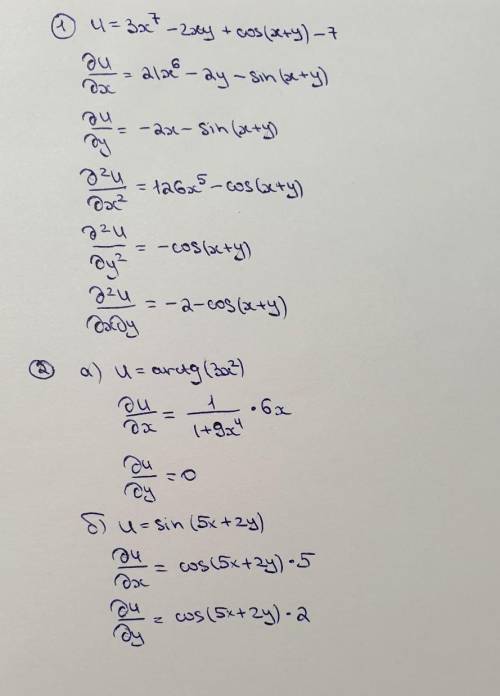 ① u = 3x⁷ - 2xy + cos(x+y) - 7
∂u/∂x = 21x⁶ - 2y - sin(x+y)
∂u/∂y = -2x - sin(x+y)
∂²u/∂x² = 126x⁵ - cos(x+y)
∂²u/∂y² = -cos(x+y)
∂²u/∂x∂y = -2 - cos(x+y)
② а) u = arctg(3x²)
∂u/∂x = 1/(1+9x⁴) · 6x
∂u/∂y = 0
б) u = sin(5x+2y)
∂u/∂x = cos(5x+2y) · 5
∂u/∂y = cos(5x+2y) · 2